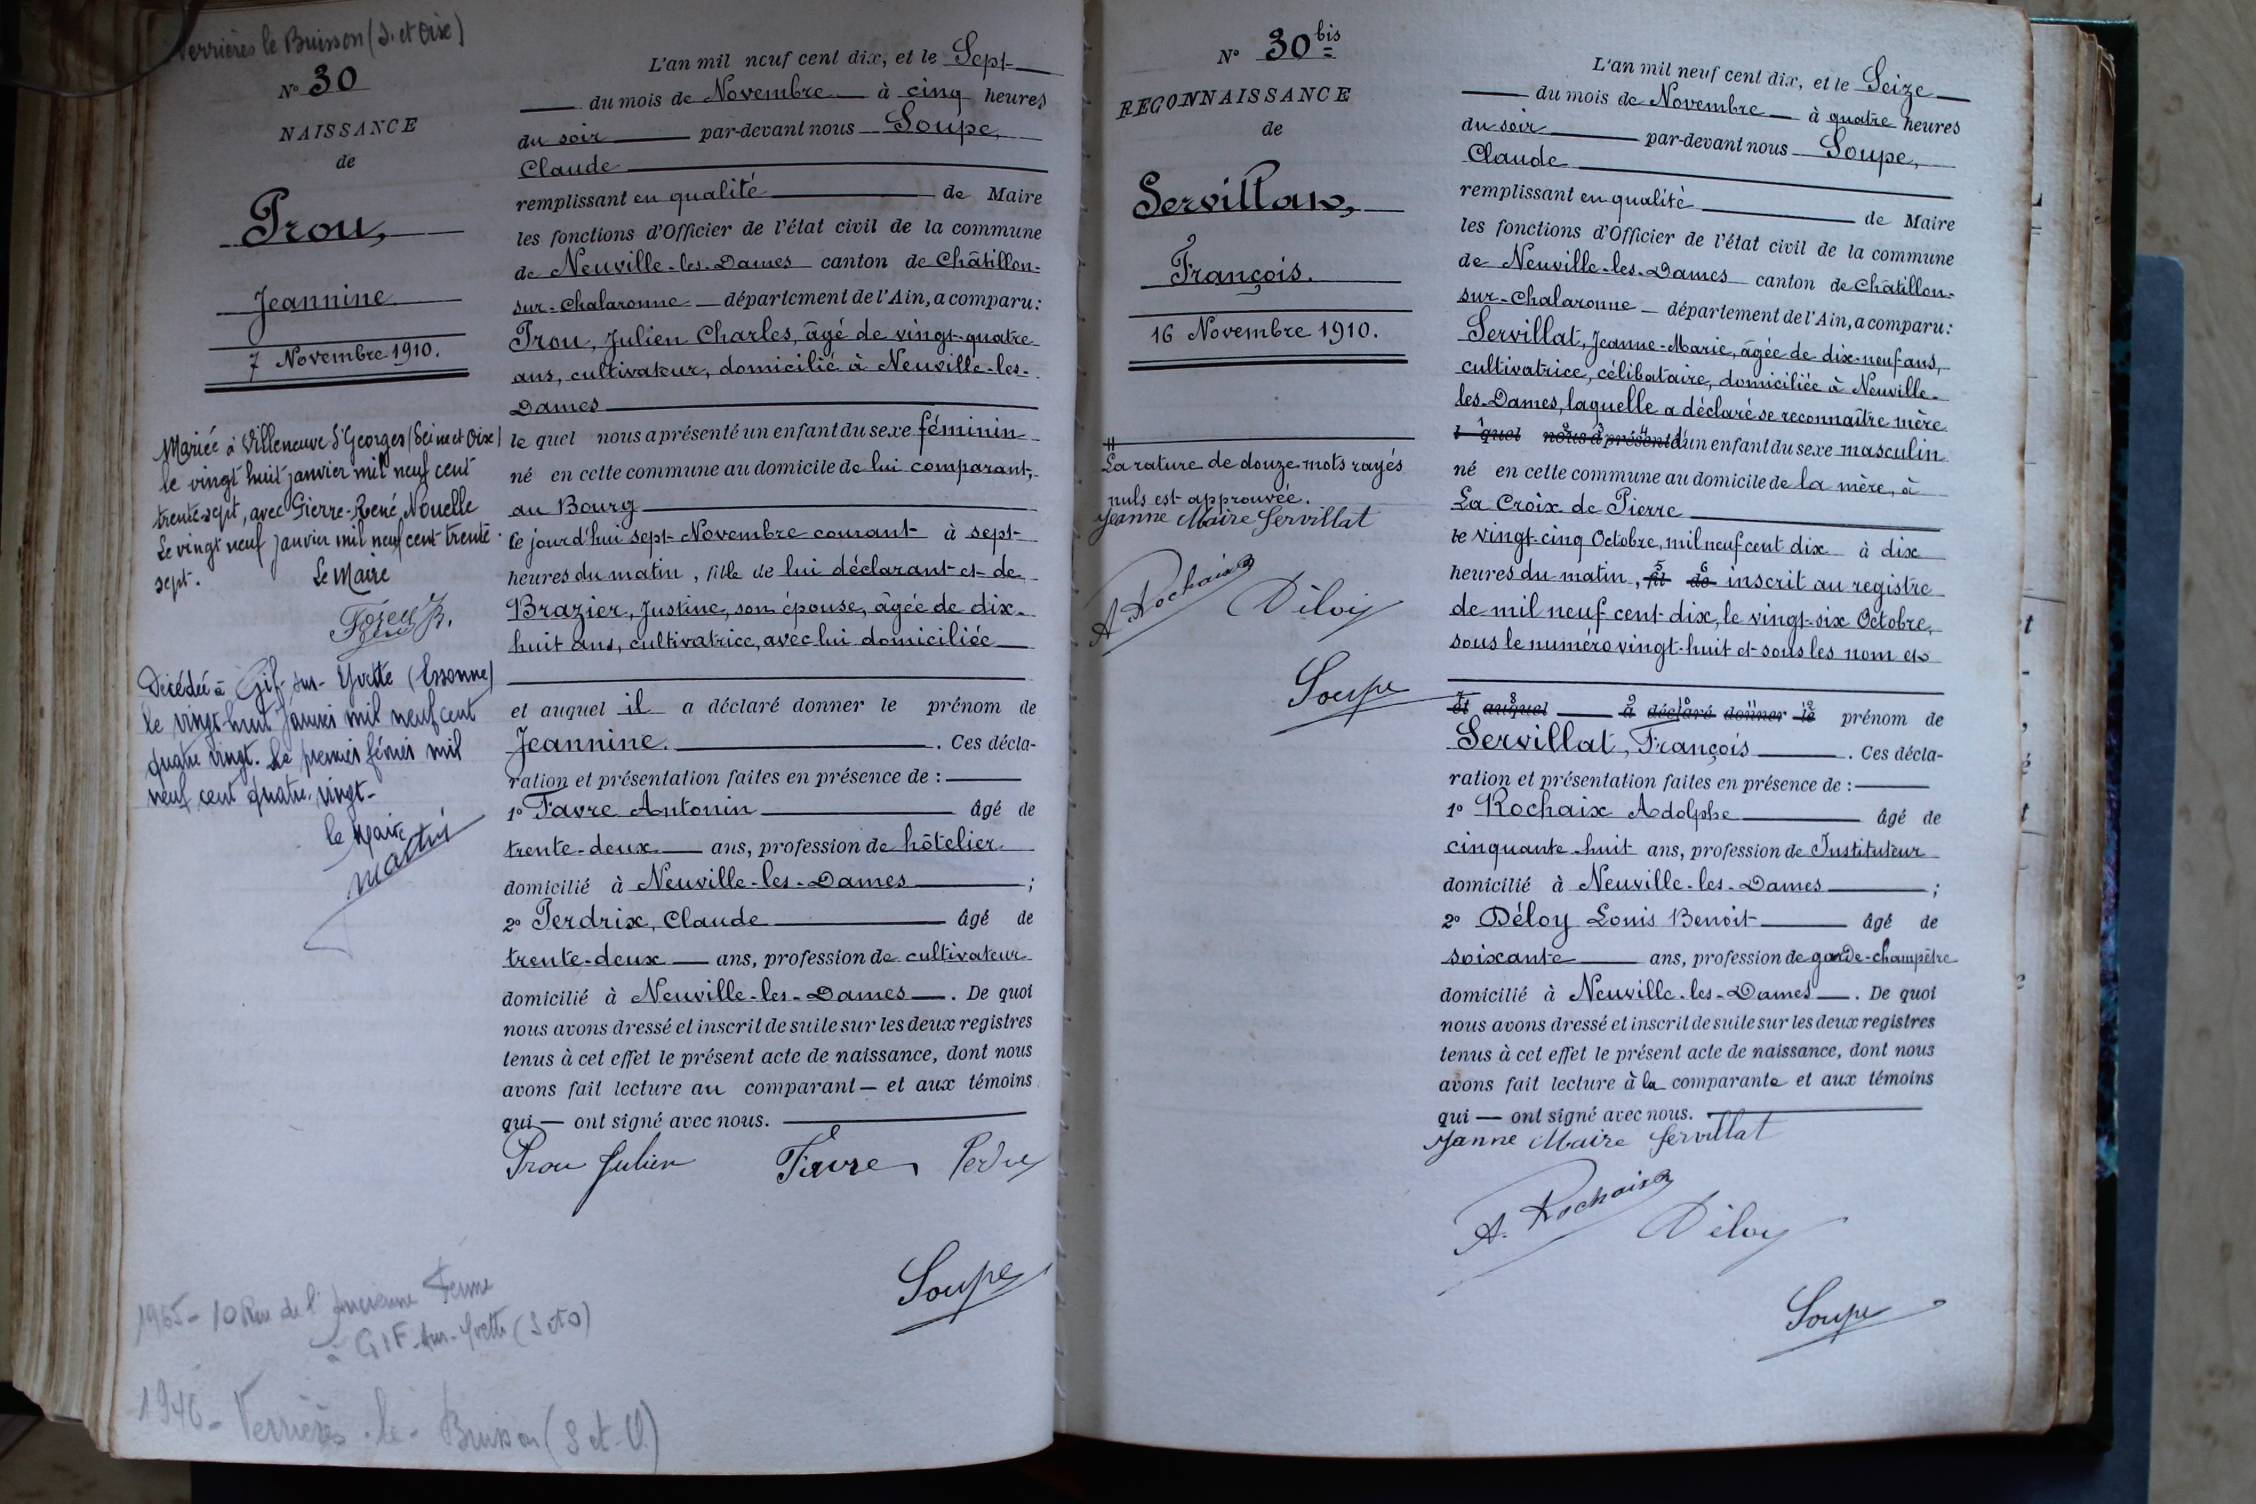 Verrières le Buisson (S. et Oise)
N° 30
NAISSANCE
de
Prou,
Jeannine
7 Novembre 1910.
Mariée à Villeneuve St Georges (Seine et Oise)
le vingt huit janvier mil neuf cent
trente-sept, avec Pierre-René Nouelle
Le vingt neuf janvier mil neuf cent trente
sept.
Le Maire
Décédée à Gif-sur-Yvette (Essonne)
le vingt huit Janvier mil neuf cent
quatre vingt. Le premier février mil
neuf cent quatre-vingt-
le Maire
1965 - 10 Rue de l'Ancienne Ferme
à GIF-sur-Yvette (S et O)
1946 - Verrières-le-Buisson (S et O)
L'an mil neuf cent dix, et le Sept
du mois de Novembre à cinq heures
du soir par-devant nous Soupe,
Claude
remplissant en qualité de Maire
les fonctions d'Officier de l'état civil de la commune
de Neuville-les-Dames canton de Châtillon-
sur-Chalaronne département de l'Ain, a comparu :
Prou, Julien Charles, âgé de vingt-quatre
ans, cultivateur, domicilié à Neuville-les-
Dames
le quel nous a présenté un enfant du sexe féminin
né en cette commune au domicile de lui comparant,
au Bourg
ce jourd'hui sept Novembre courant à sept
heures du matin, fille de lui déclarant et de
Brazier, Justine, son épouse, âgée de dix-
huit ans, cultivatrice, avec lui domiciliée
et auquel il a déclaré donner le prénom de
Jeannine. . Ces décla-
ration et présentation faites en présence de :
1° Favre Antonin âgé de
trente-deux ans, profession de hôtelier
domicilié à Neuville-les-Dames ;
2° Perdrix, Claude âgé de
trente-deux ans, profession de cultivateur
domicilié à Neuville-les-Dames . De quoi
nous avons dressé et inscrit de suite sur les deux registres
tenus à cet effet le présent acte de naissance, dont nous
avons fait lecture au comparant et aux témoins
qui ont signé avec nous.
Prou Julien Favre
Soupe
N° 30 bis
RECONNAISSANCE
de
Servillat,
François.
16 Novembre 1910.
La rature de douze mots rayés
nuls est approuvée.
Jeanne Maire Servillat
A Rochaix Déloy
Soupe
L'an mil neuf cent dix, et le Seize
du mois de Novembre à quatre heures
du soir par-devant nous Soupe,
Claude
remplissant en qualité de Maire
les fonctions d'Officier de l'état civil de la commune
de Neuville-les-Dames canton de Châtillon-
sur-Chalaronne département de l'Ain, a comparu :
Servillat, Jeanne-Marie, âgée de dix-neuf ans,
cultivatrice, célibataire, domiciliée à Neuville-
les-Dames, laquelle a déclaré se reconnaître mère
l quel nous a présenté d'un enfant du sexe masculin
né en cette commune au domicile de la mère, à
La Croix de Pierre
le vingt-cinq Octobre, mil neuf cent dix à dix
heures du matin, fil de inscrit au registre
de mil neuf cent dix, le vingt-six Octobre,
sous le numéro vingt-huit et sous les nom et
et auquel a déclaré donner le prénom de
Servillat, François . Ces décla-
ration et présentation faites en présence de :
1° Rochaix Adolphe âgé de
cinquante-huit ans, profession de Instituteur
domicilié à Neuville-les-Dames ;
2° Déloy Louis Benoit âgé de
soixante ans, profession de garde-champêtre
domicilié à Neuville-les-Dames . De quoi
nous avons dressé et inscrit de suite sur les deux registres
tenus à cet effet le présent acte de naissance, dont nous
avons fait lecture à la comparante et aux témoins
qui ont signé avec nous.
Jeanne Maire Servillat
A. Rochaix Déloy
Soupe